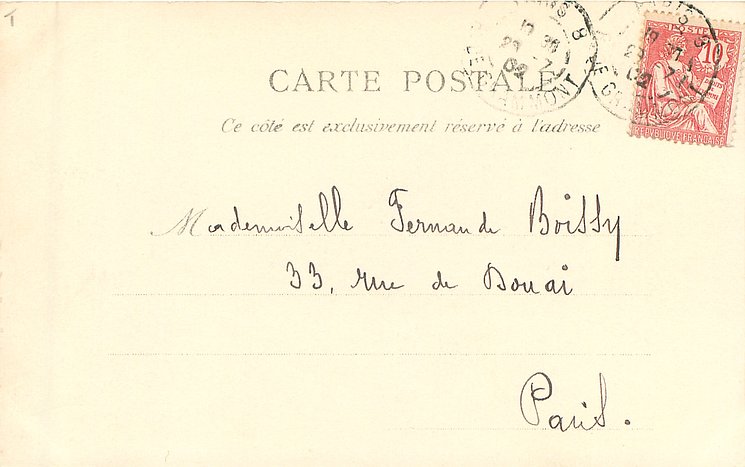 CARTE POSTALE
Ce côté est exclusivement réservé à l'adresse
10
POSTES
REPUBLIQUE FRANÇAISE
Mademoiselle Fernande Boissy
33, rue de Douai
Paris.